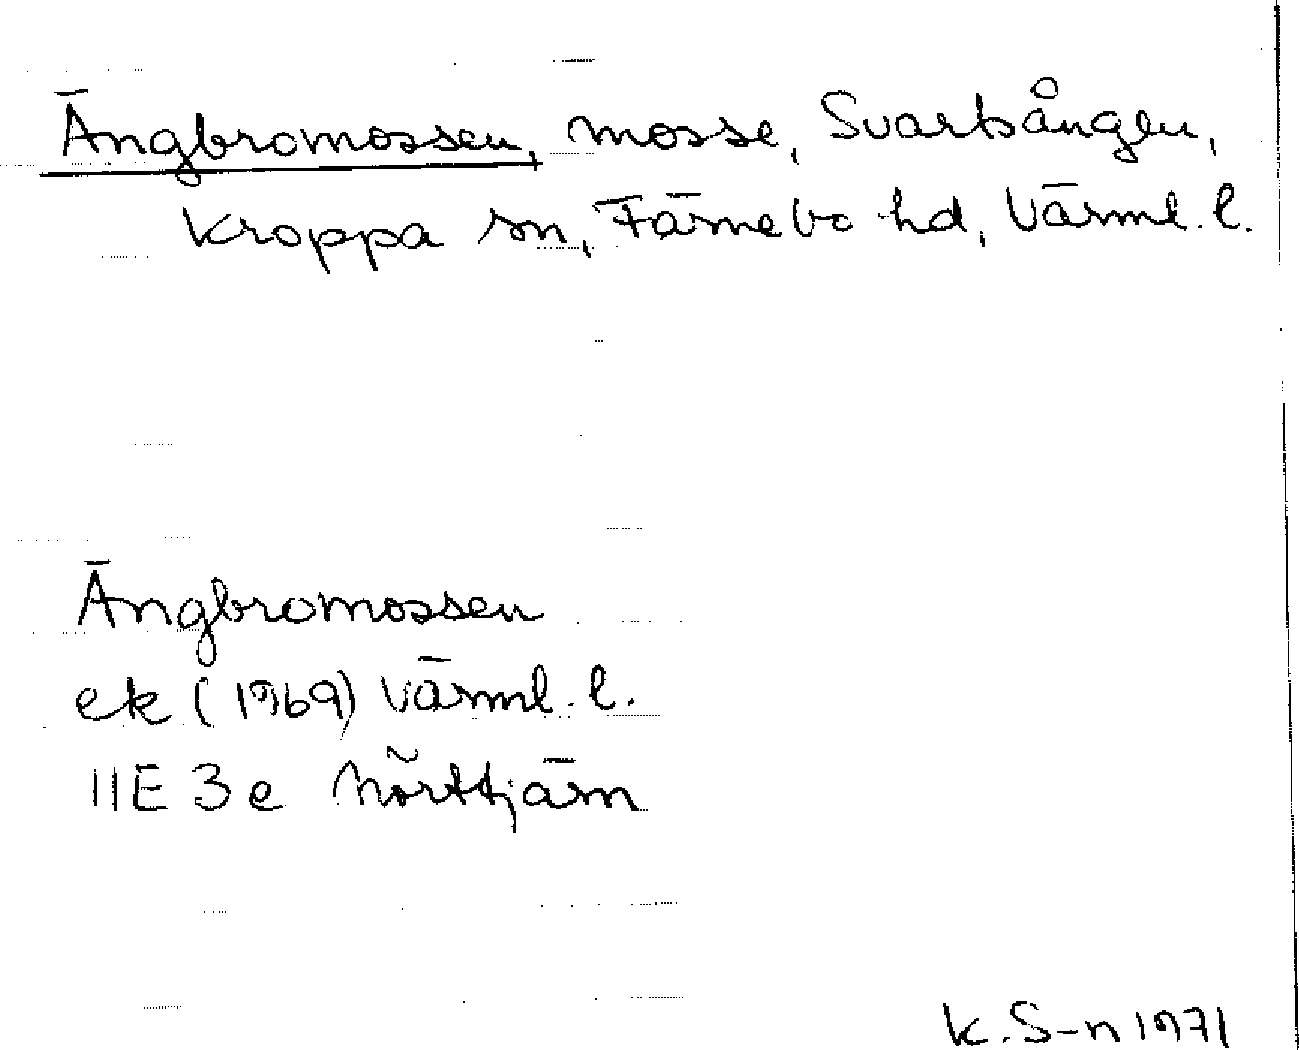 Ängbromossen, mosse, Svartsången,
Kroppa sn, Färnebo hd, Värml. l.
Ängbromossen
ek (1969) Värml. l.
11E 3e Nörttjärn
K. S-n 1971